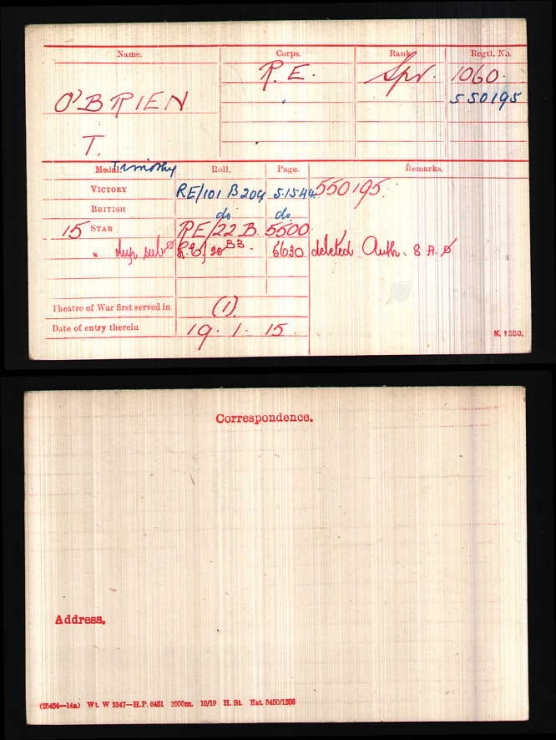 Name. Corps. Rank. Regtl. No.
R.E. Spr. 1060.
O'BRIEN 550195
T.
Timothy
Medal. Roll. Page. Remarks.
VICTORY RE/101 B209 51544 550195.
BRITISH do do
15 STAR RE/22 B. 5500
" dup sub R.E/20 B3. 5630 deleted Auth.
Theatre of War first served in (1)
Date of entry therein 19. 1. 15.
K. 1380.
Correspondence.
Address.
Wt. W 3247—H.P. 6451 2000m. 10/19 H. St.